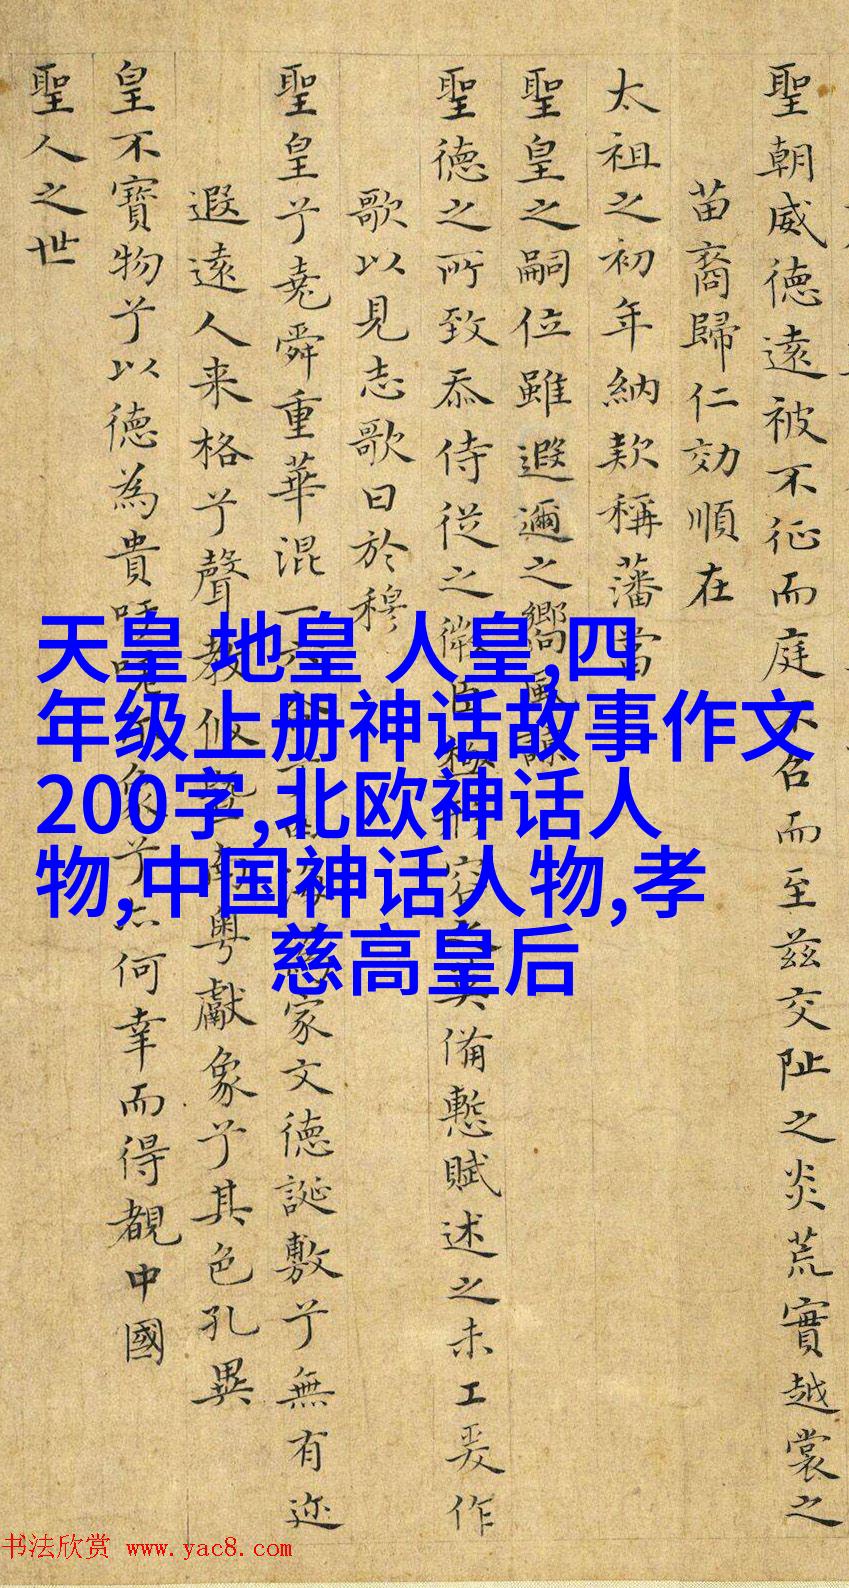 聖朝威德遠被不征而庭不召而至茲交阯之炎荒實越裳之
苗裔歸仁効順在
太祖之初年納款稱藩當
聖皇之嗣位雖遐邇之嚮風
聖德之所致忝侍從之微臣極形容之莫備慙賦述之未工爰作
歌以見志歌曰於穆
聖皇兮堯舜重華混一六合兮四海為家文德誕敷兮無有迩
遐遠人来格兮聲教攸暨南粤獻象兮其色孔異
皇不寶物兮以德為貴吁嗟象兮亦何幸而得覩中國
聖人之世
天皇 地皇 人皇,四
年级上册神话故事作文
200字,北欧神话人
物,中国神话人物,孝
慈高皇后
书法欣赏 www.yac8.com